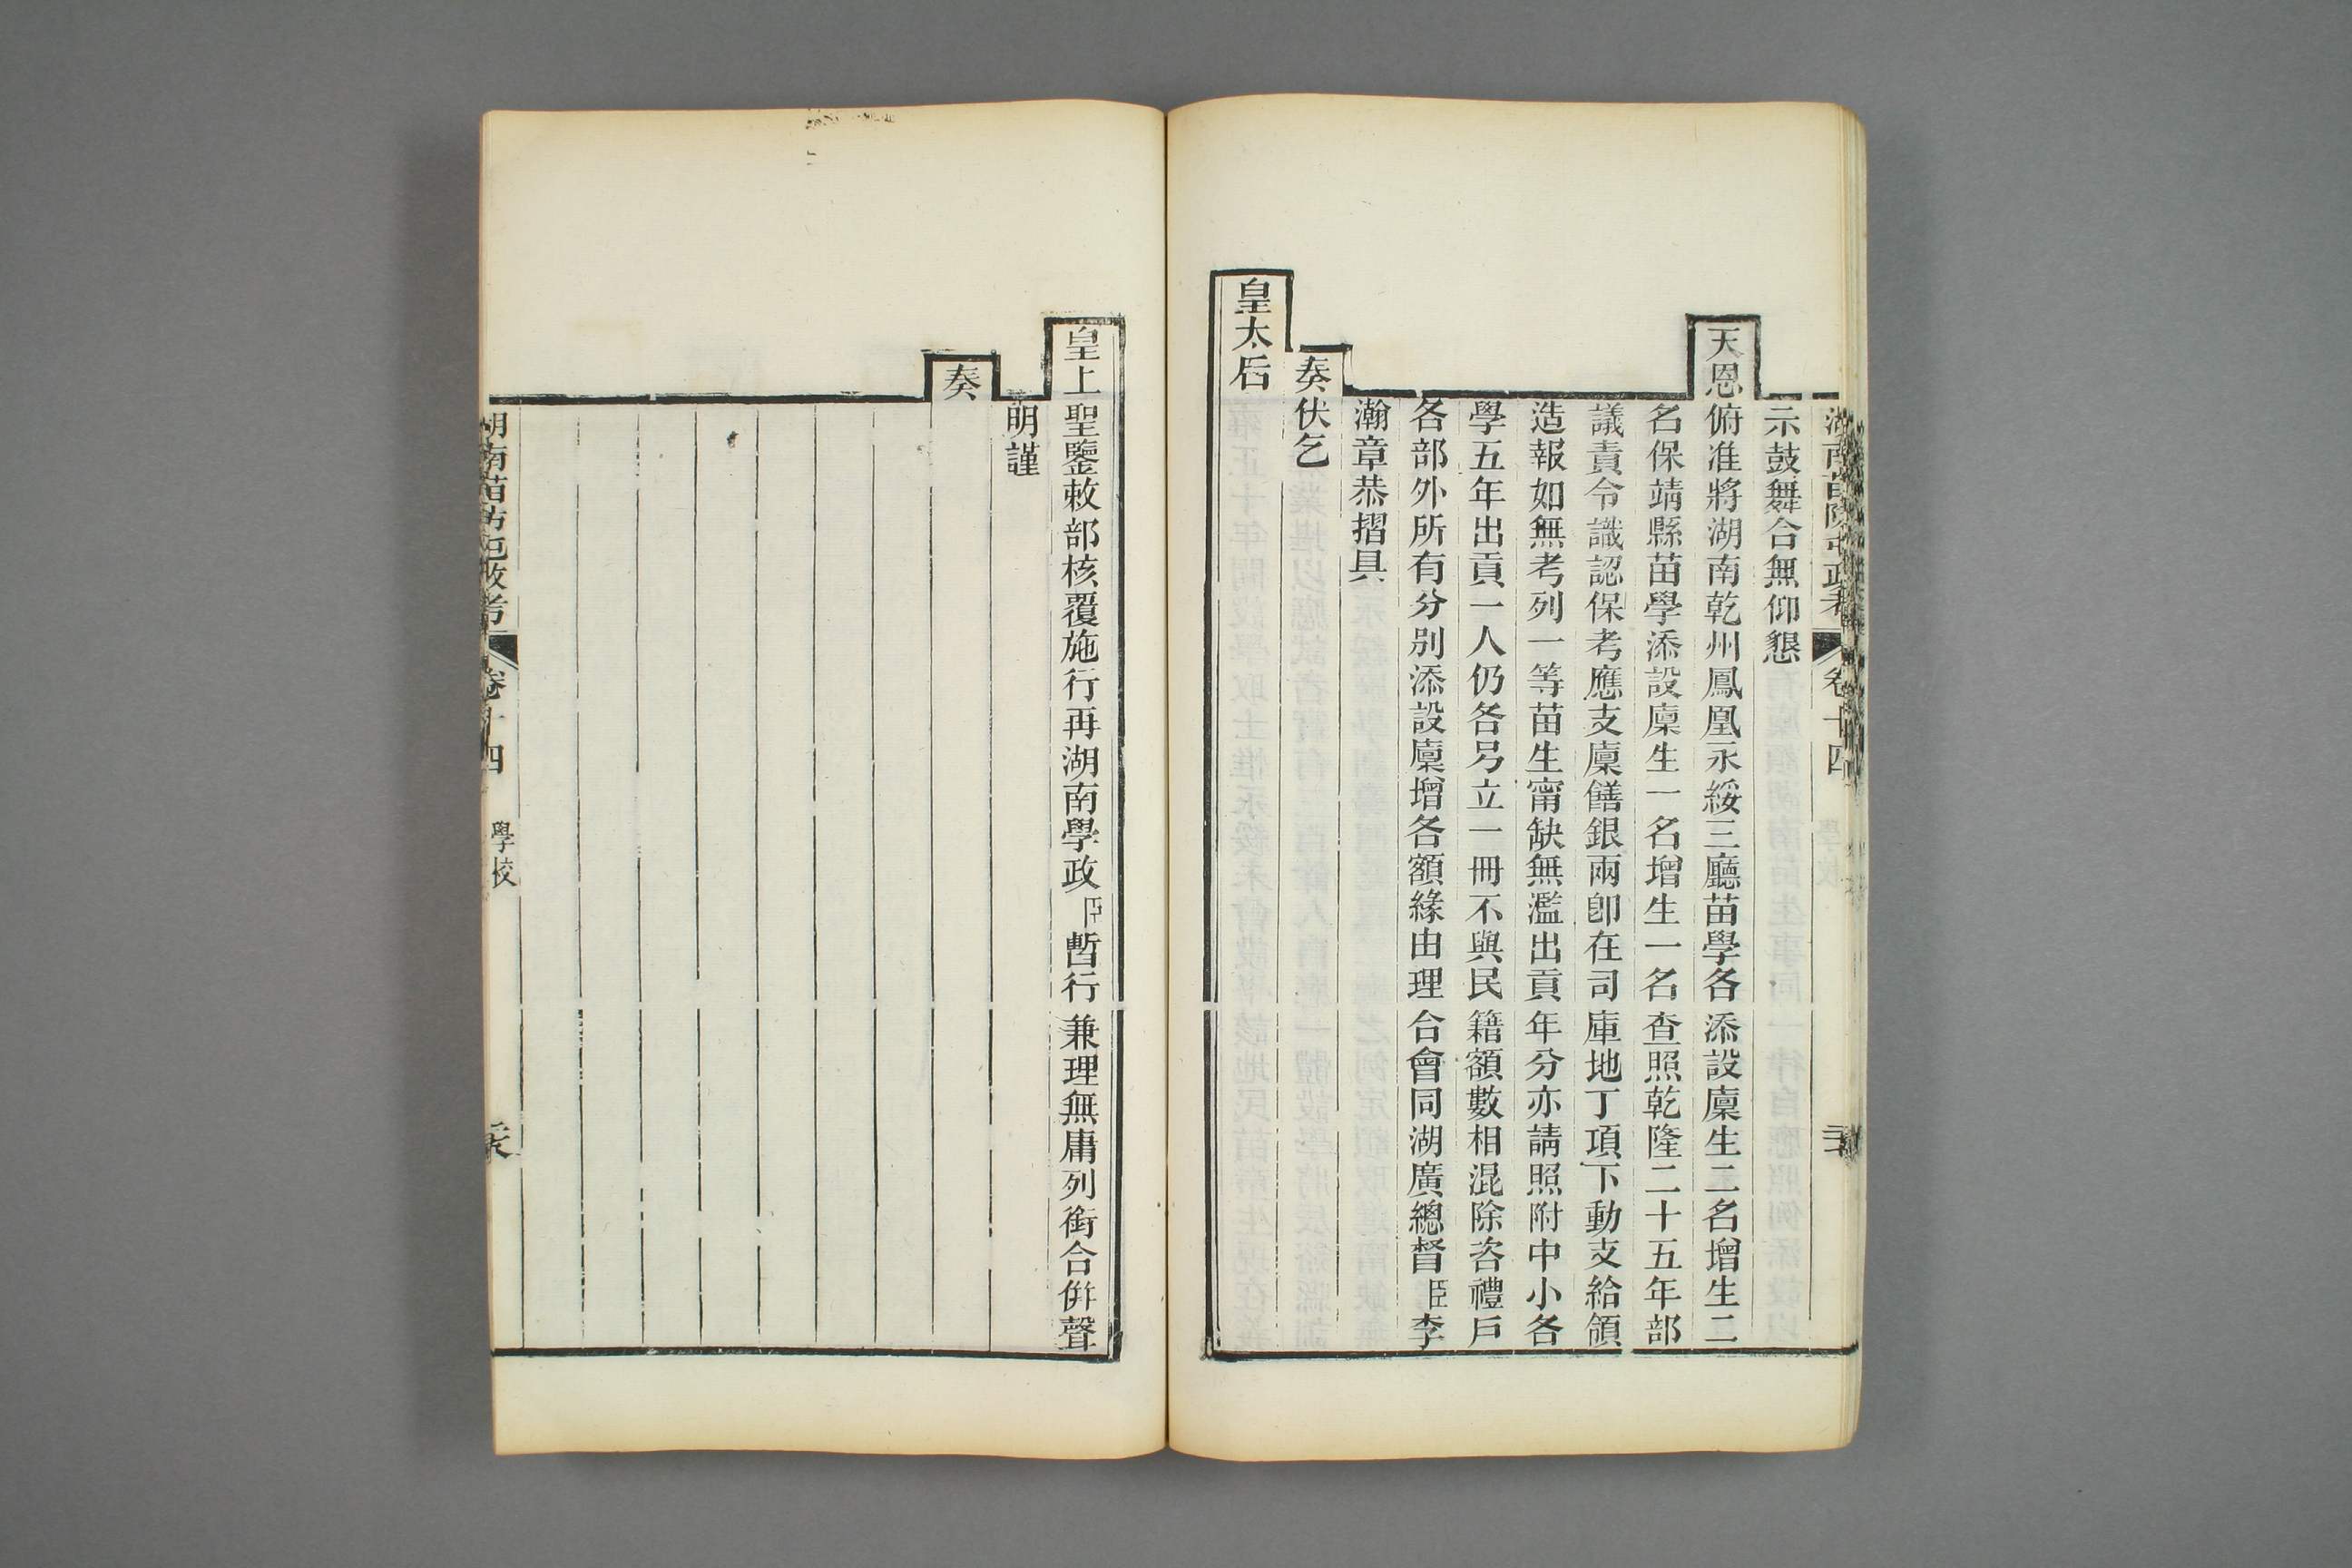 湖南苗防屯政考 卷十四 學校
示鼓舞合無仰懇
天恩俯准將湖南乾州鳳凰永綏三廳苗學各添設廩生二名增生二
名保靖縣苗學添設廩生一名增生一名查照乾隆二十五年部
議責令識認保考應支廩餼銀兩卽在司庫地丁項下動支給領
造報如無考列一等苗生甯缺無濫出貢年分亦請照附中小各
學五年出貢一人仍各另立一冊不與民籍額數相混除咨禮戶
各部外所有分別添設廩增各額緣由理合會同湖廣總督臣李
瀚章恭摺具
奏伏乞
皇太后
皇上聖鑒敕部核覆施行再湖南學政臣暫行兼理無庸列銜合併聲
明謹
奏
湖南苗防屯政考 卷十四 學校